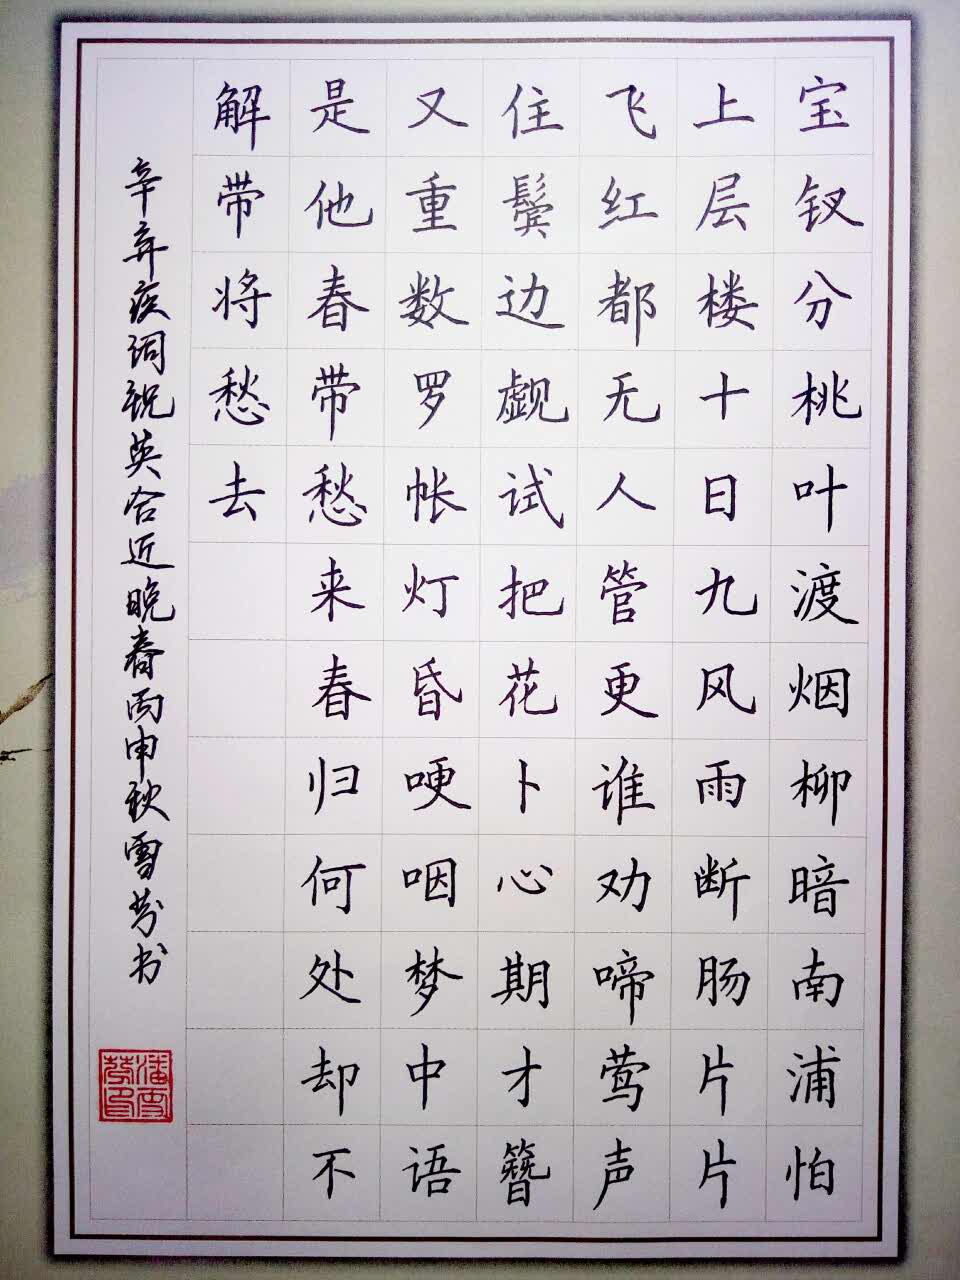 宝钗分桃叶渡烟柳暗南浦怕
上层楼十日九风雨断肠片片
飞红都无人管更谁劝啼莺声
住鬓边觑试把花卜心期才簪
又重数罗帐灯昏哽咽梦中语
是他春带愁来春归何处却不
解带将愁去
辛弃疾词祝英合近晚春丙申秋雪芬书
潘雪芬印